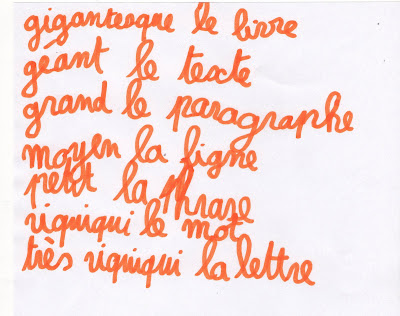 gigantesque le livre
géant le texte
grand le paragraphe
moyen la ligne
petit la phrase
riquiqui le mot
très riquiqui la lettre